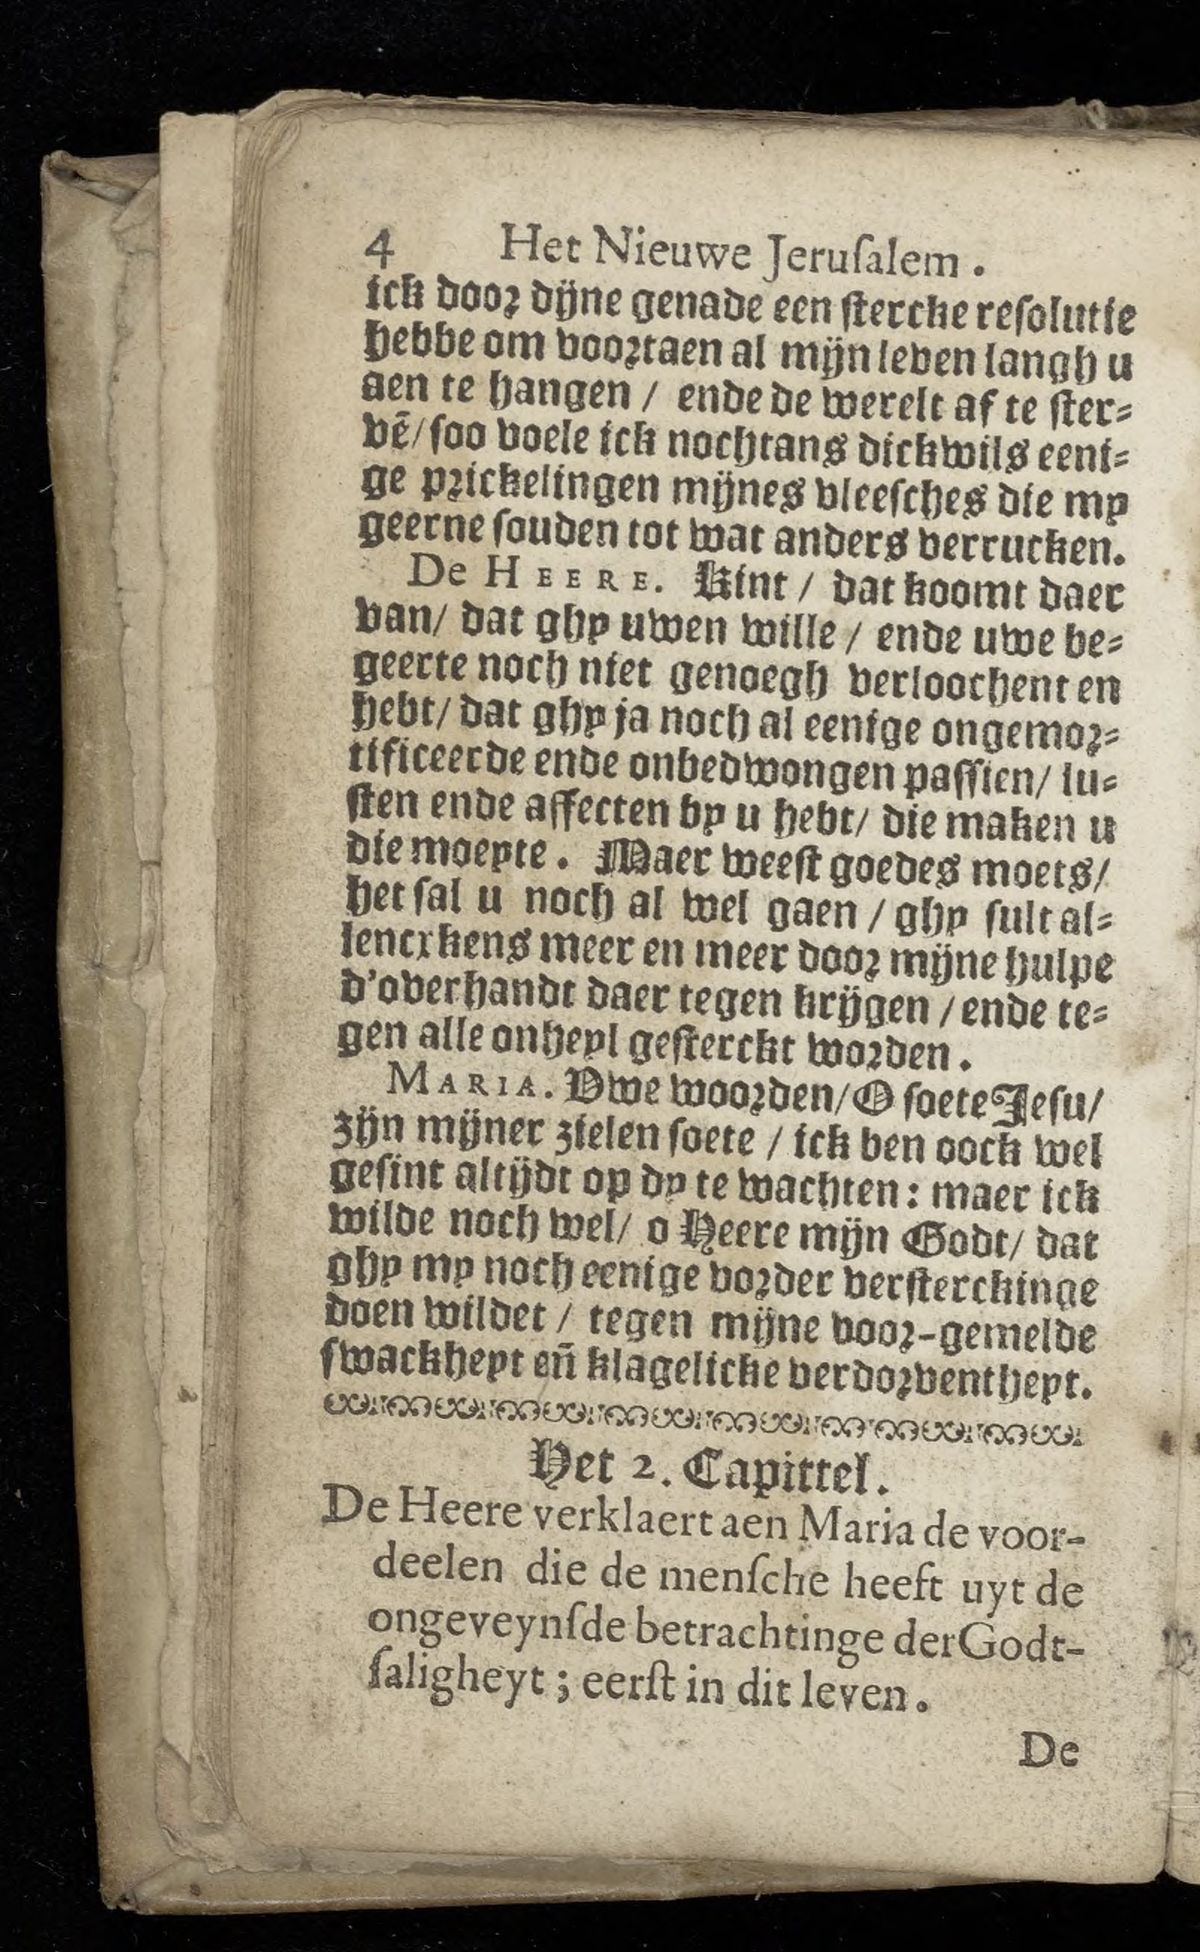 4 Het Nieuwe Jeruſalem.
ick door dijne genade een ſtercke reſolutie
hebbe om voortaen al mijn leven langh u
aen te hangen / ende de werelt af te ſter⸗
vē/ ſoo voele ick nochtans dickwils eeni⸗
ge prickelingen mijnes vleeſches die my
geerne ſouden tot wat anders verrucken.
De HEERE. Kint / dat koomt daer
van/ dat ghy uwen wille / ende uwe be⸗
geerte noch niet genoegh verloochent en
hebt/ dat ghy ja noch al eenige ongemor⸗
tificeerde ende onbedwongen paſſien/ lu⸗
ſten ende affecten by u hebt/ die maken u
die moeyte. Maer weeſt goedes moets/
het ſal u noch al wel gaen / ghy ſult al⸗
lencxkens meer en meer door mijne hulpe
d'overhandt daer tegen krijgen / ende te⸗
gen alle onheyl geſterckt worden.
MARIA. Uwe woorden/ O ſoete Jeſu/
zijn mijner zielen ſoete / ick ben oock wel
geſint altijdt op dy te wachten: maer ick
wilde noch wel/ o Heere mijn Godt/ dat
ghy my noch eenige vorder verſterckinge
doen wildet / tegen mijne voor-gemelde
ſwackheyt eñ klagelicke verdorventheyt.
Het 2. Capittel.
De Heere verklaert aen Maria de voor-
deelen die de menſche heeft uyt de
ongeveynſde betrachtinge der Godt-
ſaligheyt; eerſt in dit leven.
De